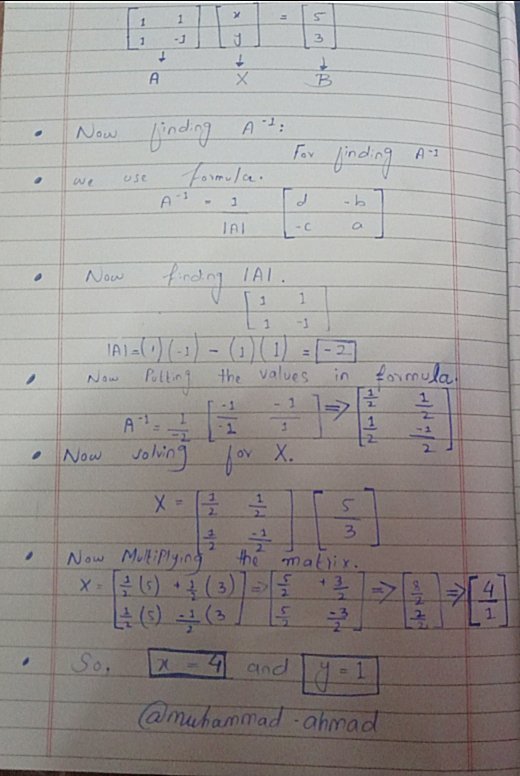 [1 1] [x] = [5]
[1 -1] [y] [3]
↓ ↓ ↓
A X B
• Now finding A⁻¹:
For finding A⁻¹
• we use formula.
A⁻¹ = 1/|A| [d -b]
[-c a]
• Now finding |A|.
[1 1]
[1 -1]
|A|=(1)(-1) - (1)(1) = -2
• Now Putting the values in formula.
A⁻¹ = 1/-2 [-1 -1] ⇒ [1/2 1/2]
[-1 1] [1/2 -1/2]
• Now solving for X.
X = [1/2 1/2] [5]
[1/2 -1/2] [3]
• Now Multiplying the matrix.
X= [1/2(5) + 1/2(3)] ⇒ [5/2 + 3/2] ⇒ [8/2] ⇒ [4]
[1/2(5) -1/2(3] [5/2 -3/2] [2/2] [1]
• So, x = 4 and y = 1
@muhammad-ahmad